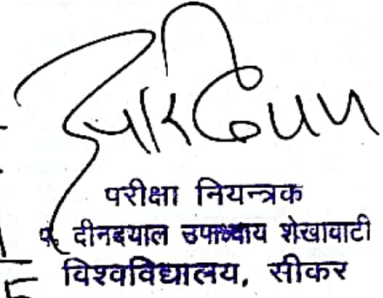 परीक्षा नियन्त्रक
पं. दीनदयाल उपाध्याय शेखावाटी
विश्वविद्यालय, सीकर